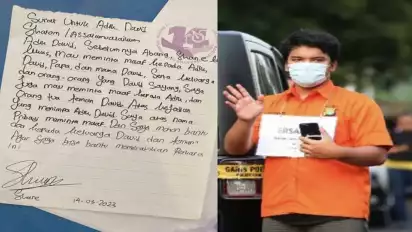 Surat Untuk Adik David
Shalom / Assalamualaikum
Adik David, Sebelumnya Abang, Shane L
Lukas, Mau meminta maaf kepada Adik
David, Papa, dan mama David, Serta keluarga
dan orang-orang yang David Sayang, Saya
Juga mau meminta maaf kepada Adik dan
Orang tua teman David, Atas kejadian
Yang menimpa Adik David, Saya atas nama
Pribadi meminta maaf. Dan Saya mohon bantu
kepada keluarga David dan teman
Agar Saya bisa bantu menyelesaikan Perkara
ini.
Shane
14-03-2023
GARIS POL